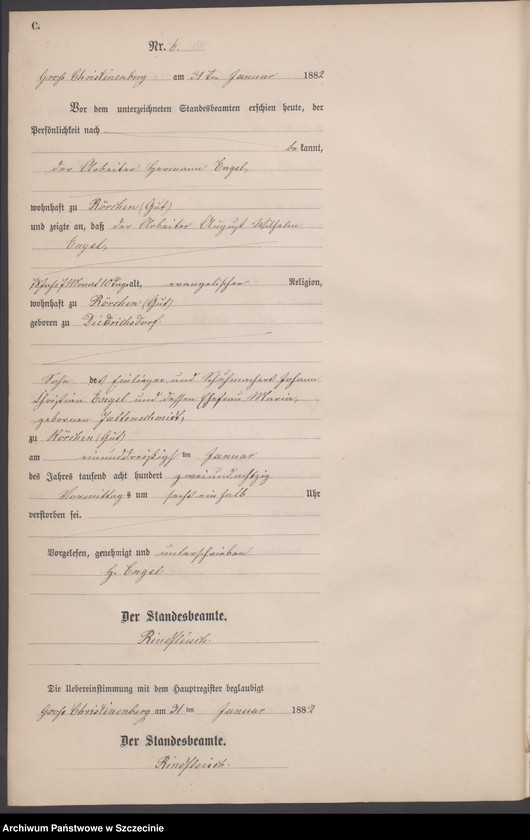 C.
Nr. 6.
Gross Christinenberg am 31ten Januar 1882
Vor dem unterzeichneten Standesbeamten erschien heute, der
Persönlichkeit nach
bekannt,
der Arbeiter Hermann Engel,
wohnhaft zu Rörchen (Gut)
und zeigte an, daß der Arbeiter August Wilhelm
Engel,
Monat 10 Tage alt, evangelischer Religion,
wohnhaft zu Rörchen (Gut)
geboren zu Diedrichsdorf
Sohn des Einlieger und Schuhmachers Johann
Christian Engel und dessen Ehefrau Maria,
gebornen
zu Rörchen (Gut)
am einunddreißigsten Januar
des Jahres tausend acht hundert zweiundachtzig
Vormittags um sechs ein halb Uhr
verstorben sei.
Vorgelesen, genehmigt und unterschrieben
H. Engel
Der Standesbeamte.
Rindfleisch.
Die Uebereinstimmung mit dem Hauptregister beglaubigt
Gross Christinenberg am 31ten Januar 1882
Der Standesbeamte.
Rindfleisch.
Archiwum Państwowe w Szczecinie